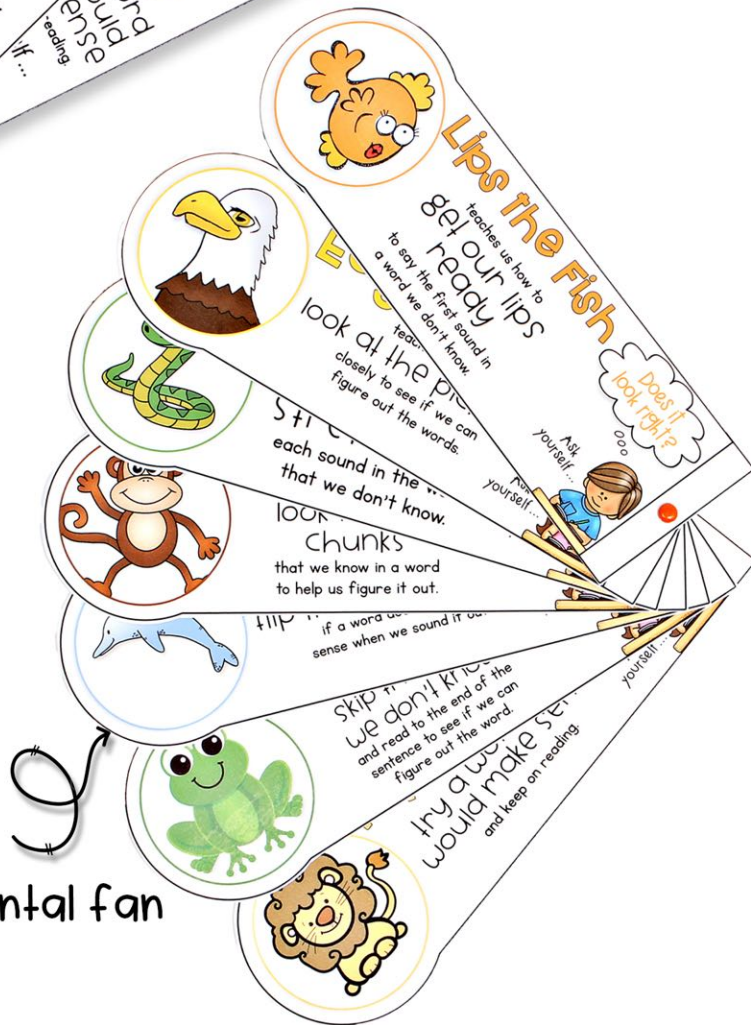 ould
ense
eading.
Lips the Fish
teaches us how to
get our lips
ready
to say the first sound in
a word we don't know.
Does it
look right?
Ask
yourself...
look at the pic
closely to see if we can
figure out the words.
yourself...
each sound in the
that we don't know.
look
chunks
that we know in a word
to help us figure it out.
flip
if a word
sense when we sound it
skip
we don't
and read to the end of the
sentence to see if we can
figure out the word.
yourself...
try a
would make
and keep on reading.
ntal fan